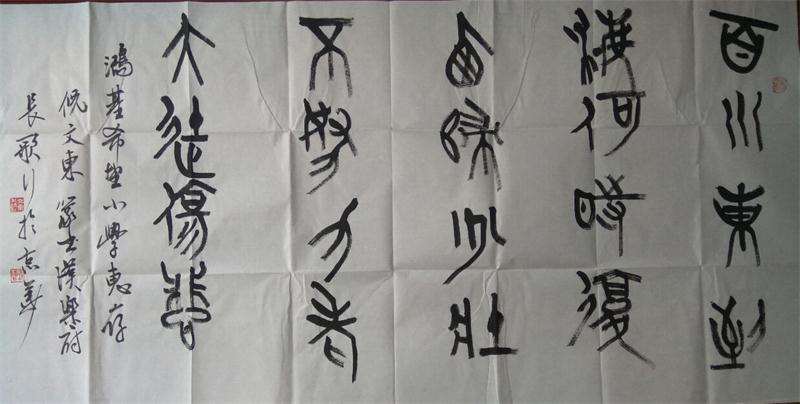 百川東到
海何時復
西歸少壯
不努力老
大徒傷悲
鴻基希望小學惠存
倪文東篆书漢樂府
長歌行於京華